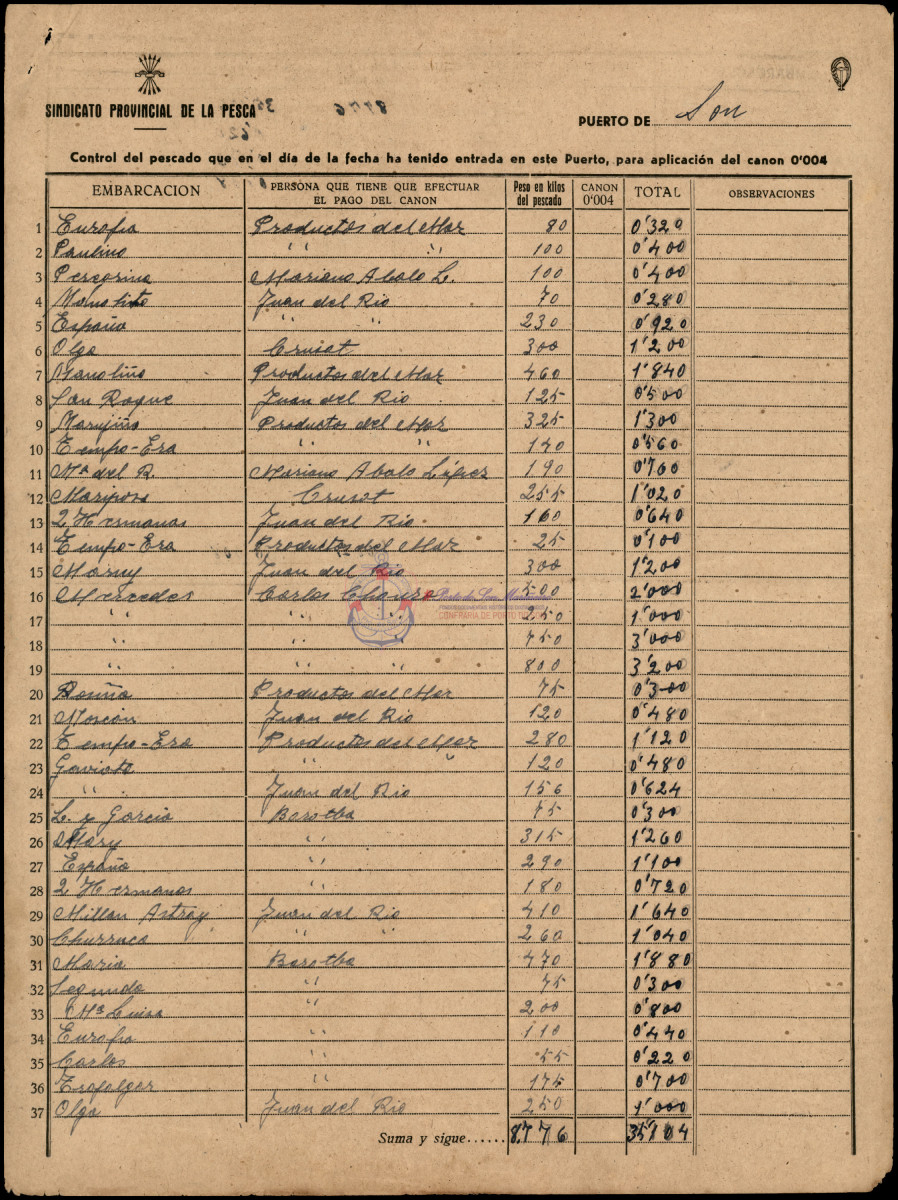 SINDICATO PROVINCIAL DE LA PESCA
8776
PUERTO DE Son
Control del pescado que en el día de la fecha ha tenido entrada en este Puerto, para aplicación del canon 0'004
EMBARCACION PERSONA QUE TIENE QUE EFECTUAR EL PAGO DEL CANON Peso en kilos del pescado CANON 0'004 TOTAL OBSERVACIONES
1 Europa Productos del Mar 80 0'320
2 Paulino " " 100 0'400
3 Peregrina Mariano Abalo L. 100 0'400
4 Manolito Juan del Rio 70 0'280
5 España " " 230 0'920
6 Olga Crusat 300 1'200
7 Manoliño Productos del Mar 460 1'840
8 San Roque Juan del Rio 125 0'500
9 Marujiña Productos del Mar 325 1'300
10 Tempo-Era " " 140 0'560
11 Mª del R. Mariano Abalo López 190 0'760
12 Mariposa Crusat 255 1'020
13 2 Hermanas Juan del Rio 160 0'640
14 Tempo-Era Productos del Mar 25 0'100
15 Maruy Juan del Rio 300 1'200
16 Mercedes Carlos 500 2'000
17 " " " 250 1'000
18 " " " 750 3'000
19 " " " 800 3'200
20 Productos del Mar 75 0'300
21 Moscón Juan del Rio 120 0'480
22 Tempo-Era Productos del Mar 280 1'120
23 Gaviota " " 120 0'480
24 " Juan del Rio 156 0'624
25 L. y Garcia Barotba 75 0'300
26 Mary " 315 1'260
27 España " 290 1'100
28 2 Hermanas " 180 0'720
29 Millan Astray Juan del Rio 410 1'640
30 Churruca " " 260 1'040
31 Maria Barotba 470 1'880
32 Segunda " 75 0'300
33 Mª Luisa " 200 0'800
34 Europa " 110 0'440
35 Carlos " 55 0'220
36 Trafalgar " 175 0'700
37 Olga Juan del Rio 250 1'000
Suma y sigue...... 8776 35'104
CONFRARÍA DE PORTO DO SON